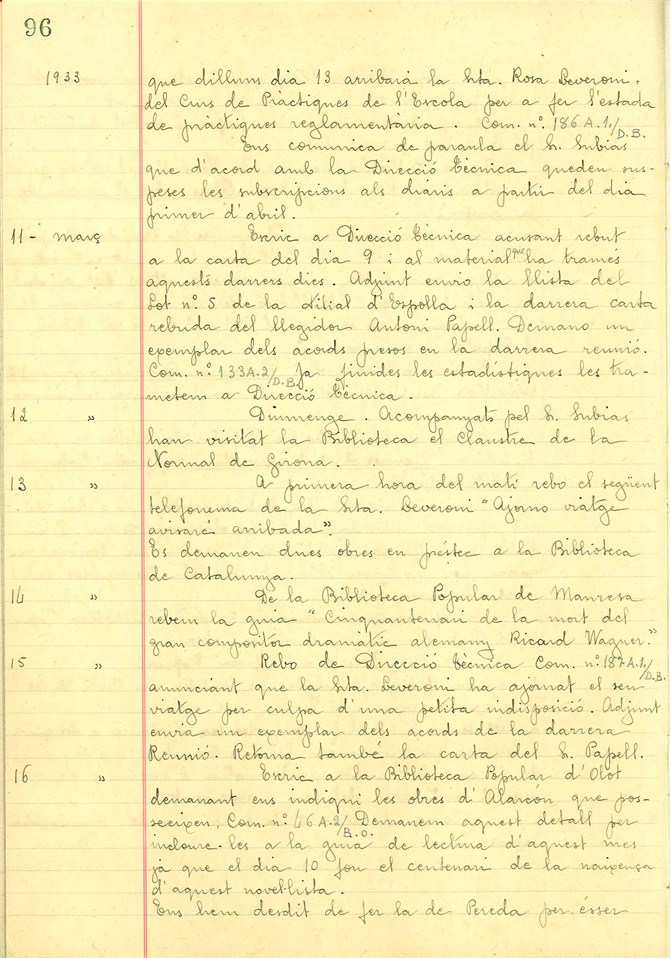 96
1933 que dilluns dia 13 arribarà la Srta. Rosa Leveroni,
del Curs de Pràctiques de l'Escola per a fer l'estada
de pràctiques reglamentària. Com. nº. 186 A.1./D.B.
Ens comunica de paraula el S. Subias
que d'acord amb la Direcció Tècnica queden sus-
peses les subscripcions als diaris a partir del dia
primer d'abril.
11 - març Escric a Direcció Tècnica acusant rebut
a la carta del dia 9 i al material que ha tramés
aquests darrers dies. Adjunt envio la llista del
Lot nº 5 de la filial d'Espolla i la darrera carta
rebuda del llegidor Antoni Papell. Demano un
exemplar dels acords presos en la darrera reunió.
Com. nº. 133 A.2/D.B. Ja finides les estadístiques les tra-
metem a Direcció Tècnica.
12 " Diumenge. Acompanyats pel S. Subias
han visitat la Biblioteca el Claustre de la
Normal de Girona.
13 " A primera hora del matí rebo el següent
telefonema de la Srta. Leveroni "Ajorno viatge
avisaré arribada".
Es demanen dues obres en préstec a la Biblioteca
de Catalunya.
14 " De la Biblioteca Popular de Manresa
rebem la guia "Cinquantenari de la mort del
gran compositor dramàtic alemany Ricard Wagner."
15 " Rebo de Direcció Tècnica Com. nº. 187 A.1./D.B.
anunciant que la Srta. Leveroni ha ajornat el seu
viatge per culpa d'una petita indisposició. Adjunt
envia un exemplar dels acords de la darrera
Reunió. Retorna també la carta del S. Papell.
16 " Escric a la Biblioteca Popular d'Olot
demanant ens indiqui les obres d'Alarcón que pos-
seeixen. Com. nº. 46 A.2/B.O. Demanem aquest detall per
incloure-les a la guia de lectura d'aquest mes
ja que el dia 10 fou el centenari de la naixença
d'aquest novel·lista.
Ens hem desdit de fer la de Pereda per ésser